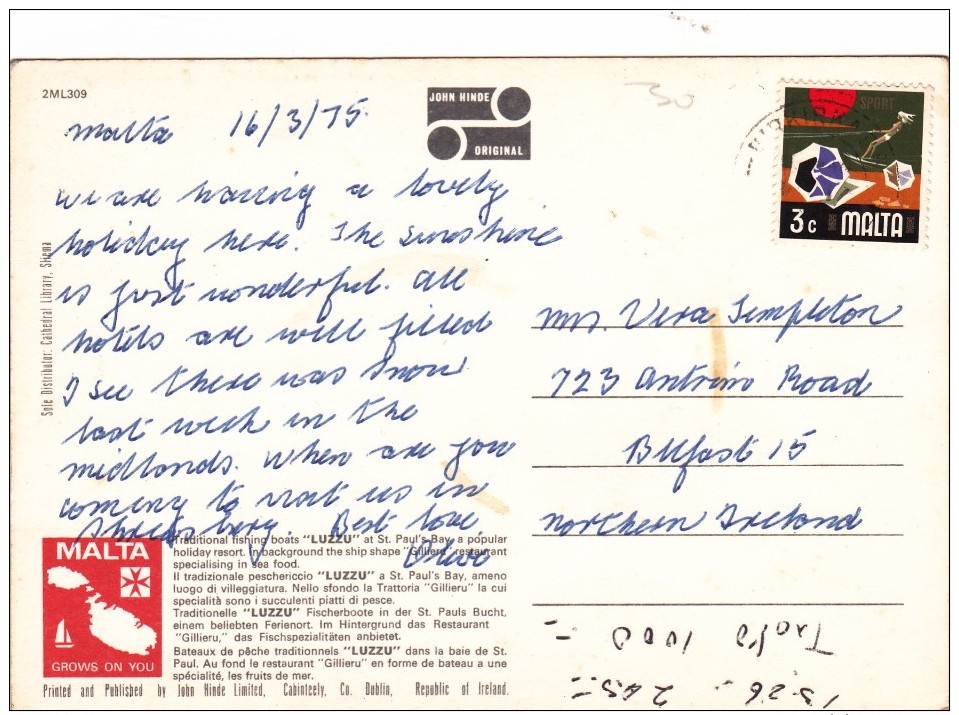 2ML309
JOHN HINDE
ORIGINAL
Malta 16/3/75.
We are having a lovely
holiday here. The sunshine
is just wonderful. All
hotels are well filled
I see there was snow
last week in the
midlands. When are you
coming to visit us in
Shrewsbury. Best love,
SPORT
3c MALTA
Mrs. Vera Templeton
723 Antrim Road
Belfast 15
Northern Ireland
Sole Distributor: Cathedral Library, Sliema
MALTA
GROWS ON YOU
Traditional fishing boats "LUZZU" at St. Paul's Bay, a popular
holiday resort. In background the ship shape "Gillieru" restaurant
specialising in sea food.
Il tradizionale peschericcio "LUZZU" a St. Paul's Bay, ameno
luogo di villeggiatura. Nello sfondo la Trattoria "Gillieru" la cui
specialità sono i succulenti piatti di pesce.
Traditionelle "LUZZU" Fischerboote in der St. Pauls Bucht,
einem beliebten Ferienort. Im Hintergrund das Restaurant
"Gillieru," das Fischspezialitäten anbietet.
Bateaux de pêche traditionnels "LUZZU" dans la baie de St.
Paul. Au fond le restaurant "Gillieru" en forme de bateau a une
spécialité, les fruits de mer.
Printed and Published by John Hinde Limited, Cabinteely, Co. Dublin, Republic of Ireland.